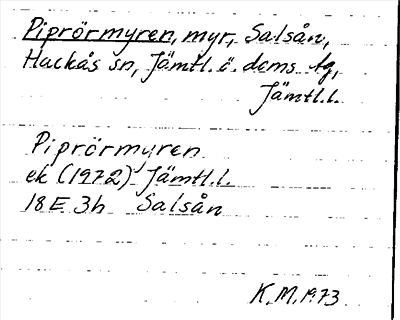 Piprörmyren, myr, Salsån,
Hackås sn, Jämtl. ö. doms. tg,
Jämtl.l.
Piprörmyren
ek (1972) Jämtl.l.
18E 3h Salsån
K.M. 1973